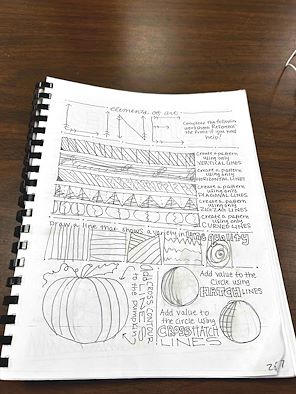 elements of art
Complete the following
worksheet. Reference
the front if you need
help!
Create a pattern
using only
VERTICAL LINES
Create a pattern
using only
HORIZONTAL LINES
Create a pattern
using only
DIAGONAL LINES
Create a pattern
using only
ZIGZAG LINES
Create a pattern
using only
CURVED LINES
Draw a line that shows a variety in line quality
Add CROSS CONTOUR
LINES
to the pumpkin
Add value to the
Circle using
HATCH LINES
Add value to
the circle using
CROSSHATCH
LINES